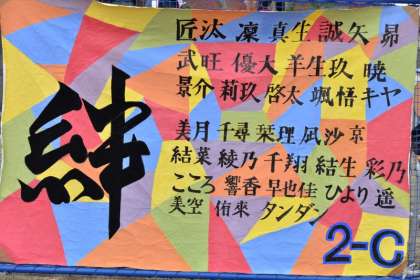 絆
匠汰 凜 真生 誠矢 昴
武旺 優大 羊生 玖 暁
景介 莉玖 啓太 颯悟 キヤ
美月 千尋 栞理 凪沙 京
結菜 綾乃 千翔 結生 彩乃
こころ 響香 早也佳 ひより 遥
美空 侑來 タンダン
2-C